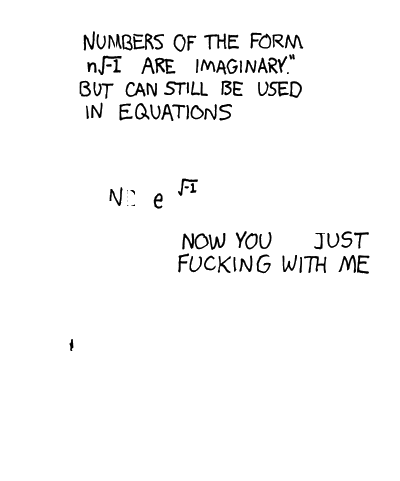 NUMBERS OF THE FORM
n√-1 ARE IMAGINARY."
BUT CAN STILL BE USED
IN EQUATIONS
e √-1
NOW YOU JUST
FUCKING WITH ME